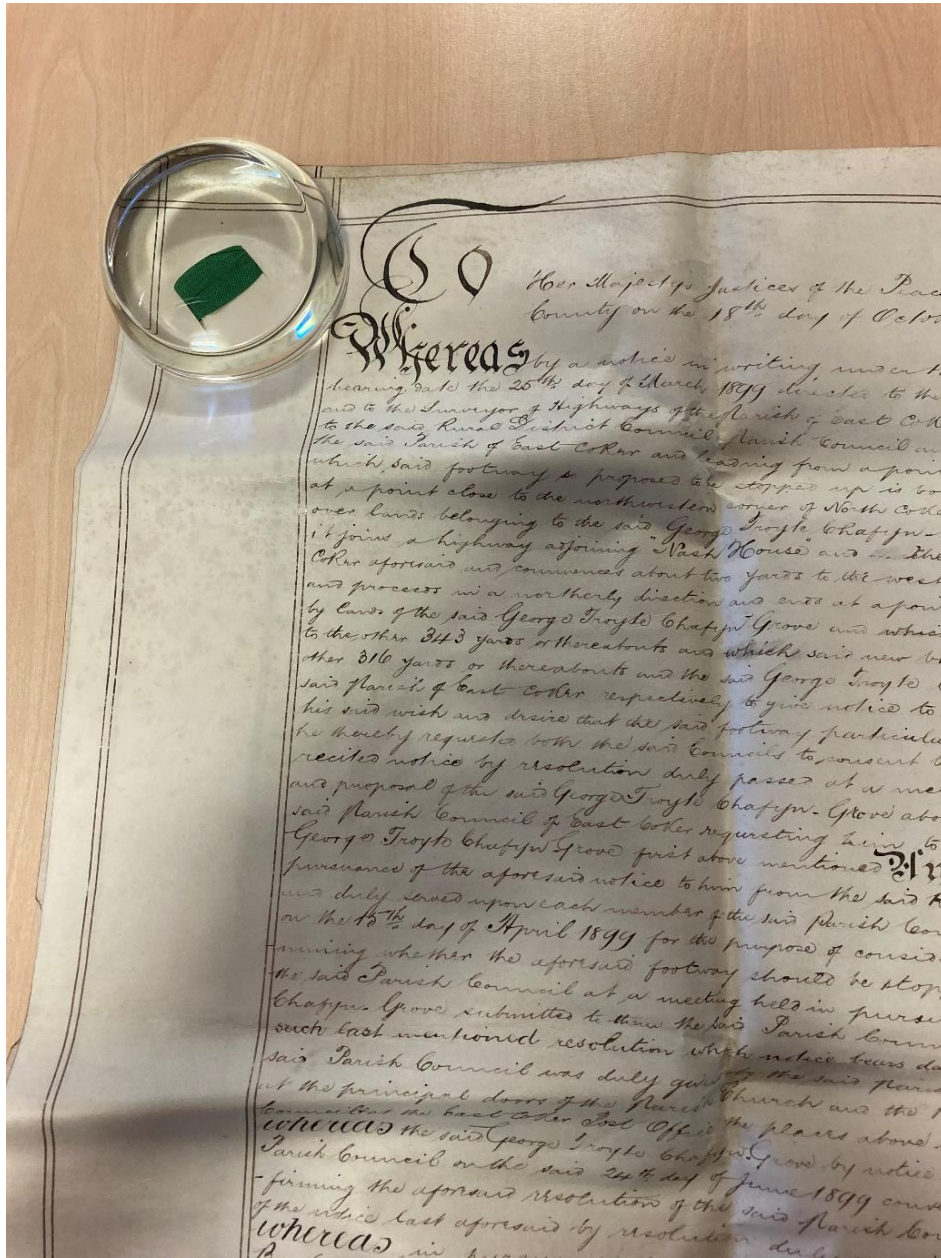 To Her Majesty's Justices of the Peac
County on the 18th day of Octo
Whereas by a notice in writing under
bearing date the 25th day of March 1899 directed to the
and to the Surveyor of Highways of the Parish of East Cok
to the said Rural District Council Parish Council an
the said Parish of East Coker and leading from a poin
which said footway so proposed to be stopped up is
at a point close to the northwestern corner of North Coke
over lands belonging to the said George Troyte Chafyn-
it joins a highway adjoining "Nash House" and The
Coker aforesaid and commences about two yards to the west
and proceeds in a northerly direction and ends at a poin
by lands of the said George Troyte Chafyn Grove and which
to the other 343 yards or thereabouts and which said new
other 316 yards or thereabouts and the said George Troyte
said Parish of East Coker respectively to give notice to
his said wish and desire that the said footway particula
he thereby requested both the said Councils to consent t
recited notice by resolution duly passed at a me
and proposal of the said George Troyte Chafyn-Grove abo
said Parish Council of East Coker requesting him to
George Troyte Chafyn Grove first above mentioned
pursuance of the aforesaid notice to him from the said
and duly served upon each member of the said Parish Cou
on the 15th day of April 1899 for the purpose of consid
-mining whether the aforesaid footway should be stop
the said Parish Council at a meeting held in pursu
Chafyn-Grove submitted to them the said Parish Coun
such last mentioned resolution which notice bears da
said Parish Council was duly by the said Paris
at the principal doors of the Parish Church and the
Council at the East Coker Post Office the places above
whereas the said George Troyte Chafyn Grove by notice
Parish Council on the said 24th day of June 1899 cons
-firming the aforesaid resolution of the said Parish Cou
of the notice last aforesaid by resolution duly
whereas in